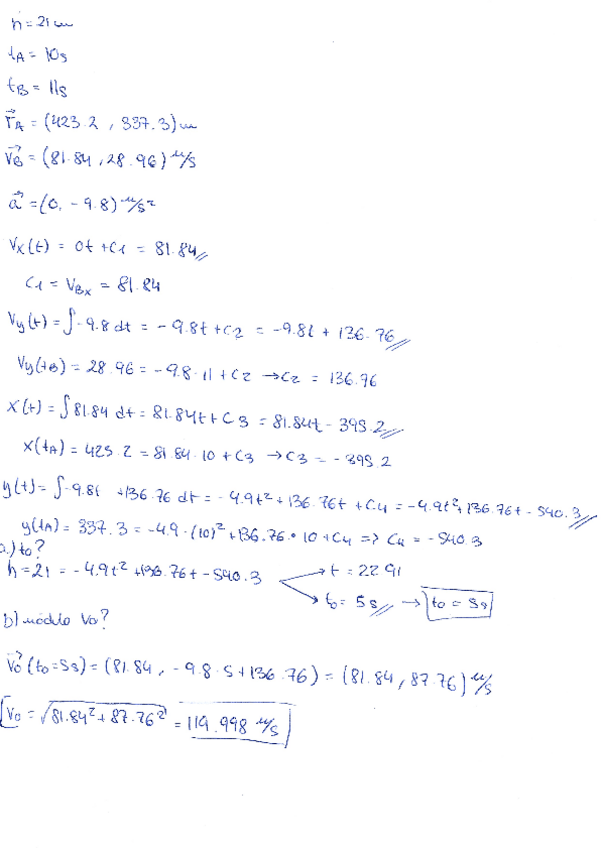 h = 21 m
tA = 10s
tB = 11s
r⃗A = (423.2 , 337.3) m
v⃗B = (81.84 , 28.96) m/s
a⃗ = (0, -9.8) m/s²
Vx(t) = 0t + C1 = 81.84
C1 = VBx = 81.84
Vy(t) = ∫-9.8 dt = -9.8t + C2 = -9.8t + 136.76
Vy(tB) = 28.96 = -9.8·11 + C2 → C2 = 136.76
X(t) = ∫81.84 dt = 81.84t + C3 = 81.84t - 395.2
X(tA) = 423.2 = 81.84·10 + C3 → C3 = -395.2
y(t) = ∫-9.8t +136.76 dt = -4.9t² + 136.76t + C4 = -4.9t² + 136.76t - 540.3
y(tA) = 337.3 = -4.9·(10)² + 136.76·10 + C4 => C4 = -540.3
a.) to?
h = 21 = -4.9t² + 136.76t - 540.3 → t = 22.91
→ to = 5s → to = 5s
b) módulo Vo?
V⃗o (to=5s) = (81.84 , -9.8·5 + 136.76) = (81.84 , 87.76) m/s
Vo = √81.84² + 87.76² = 119.998 m/s